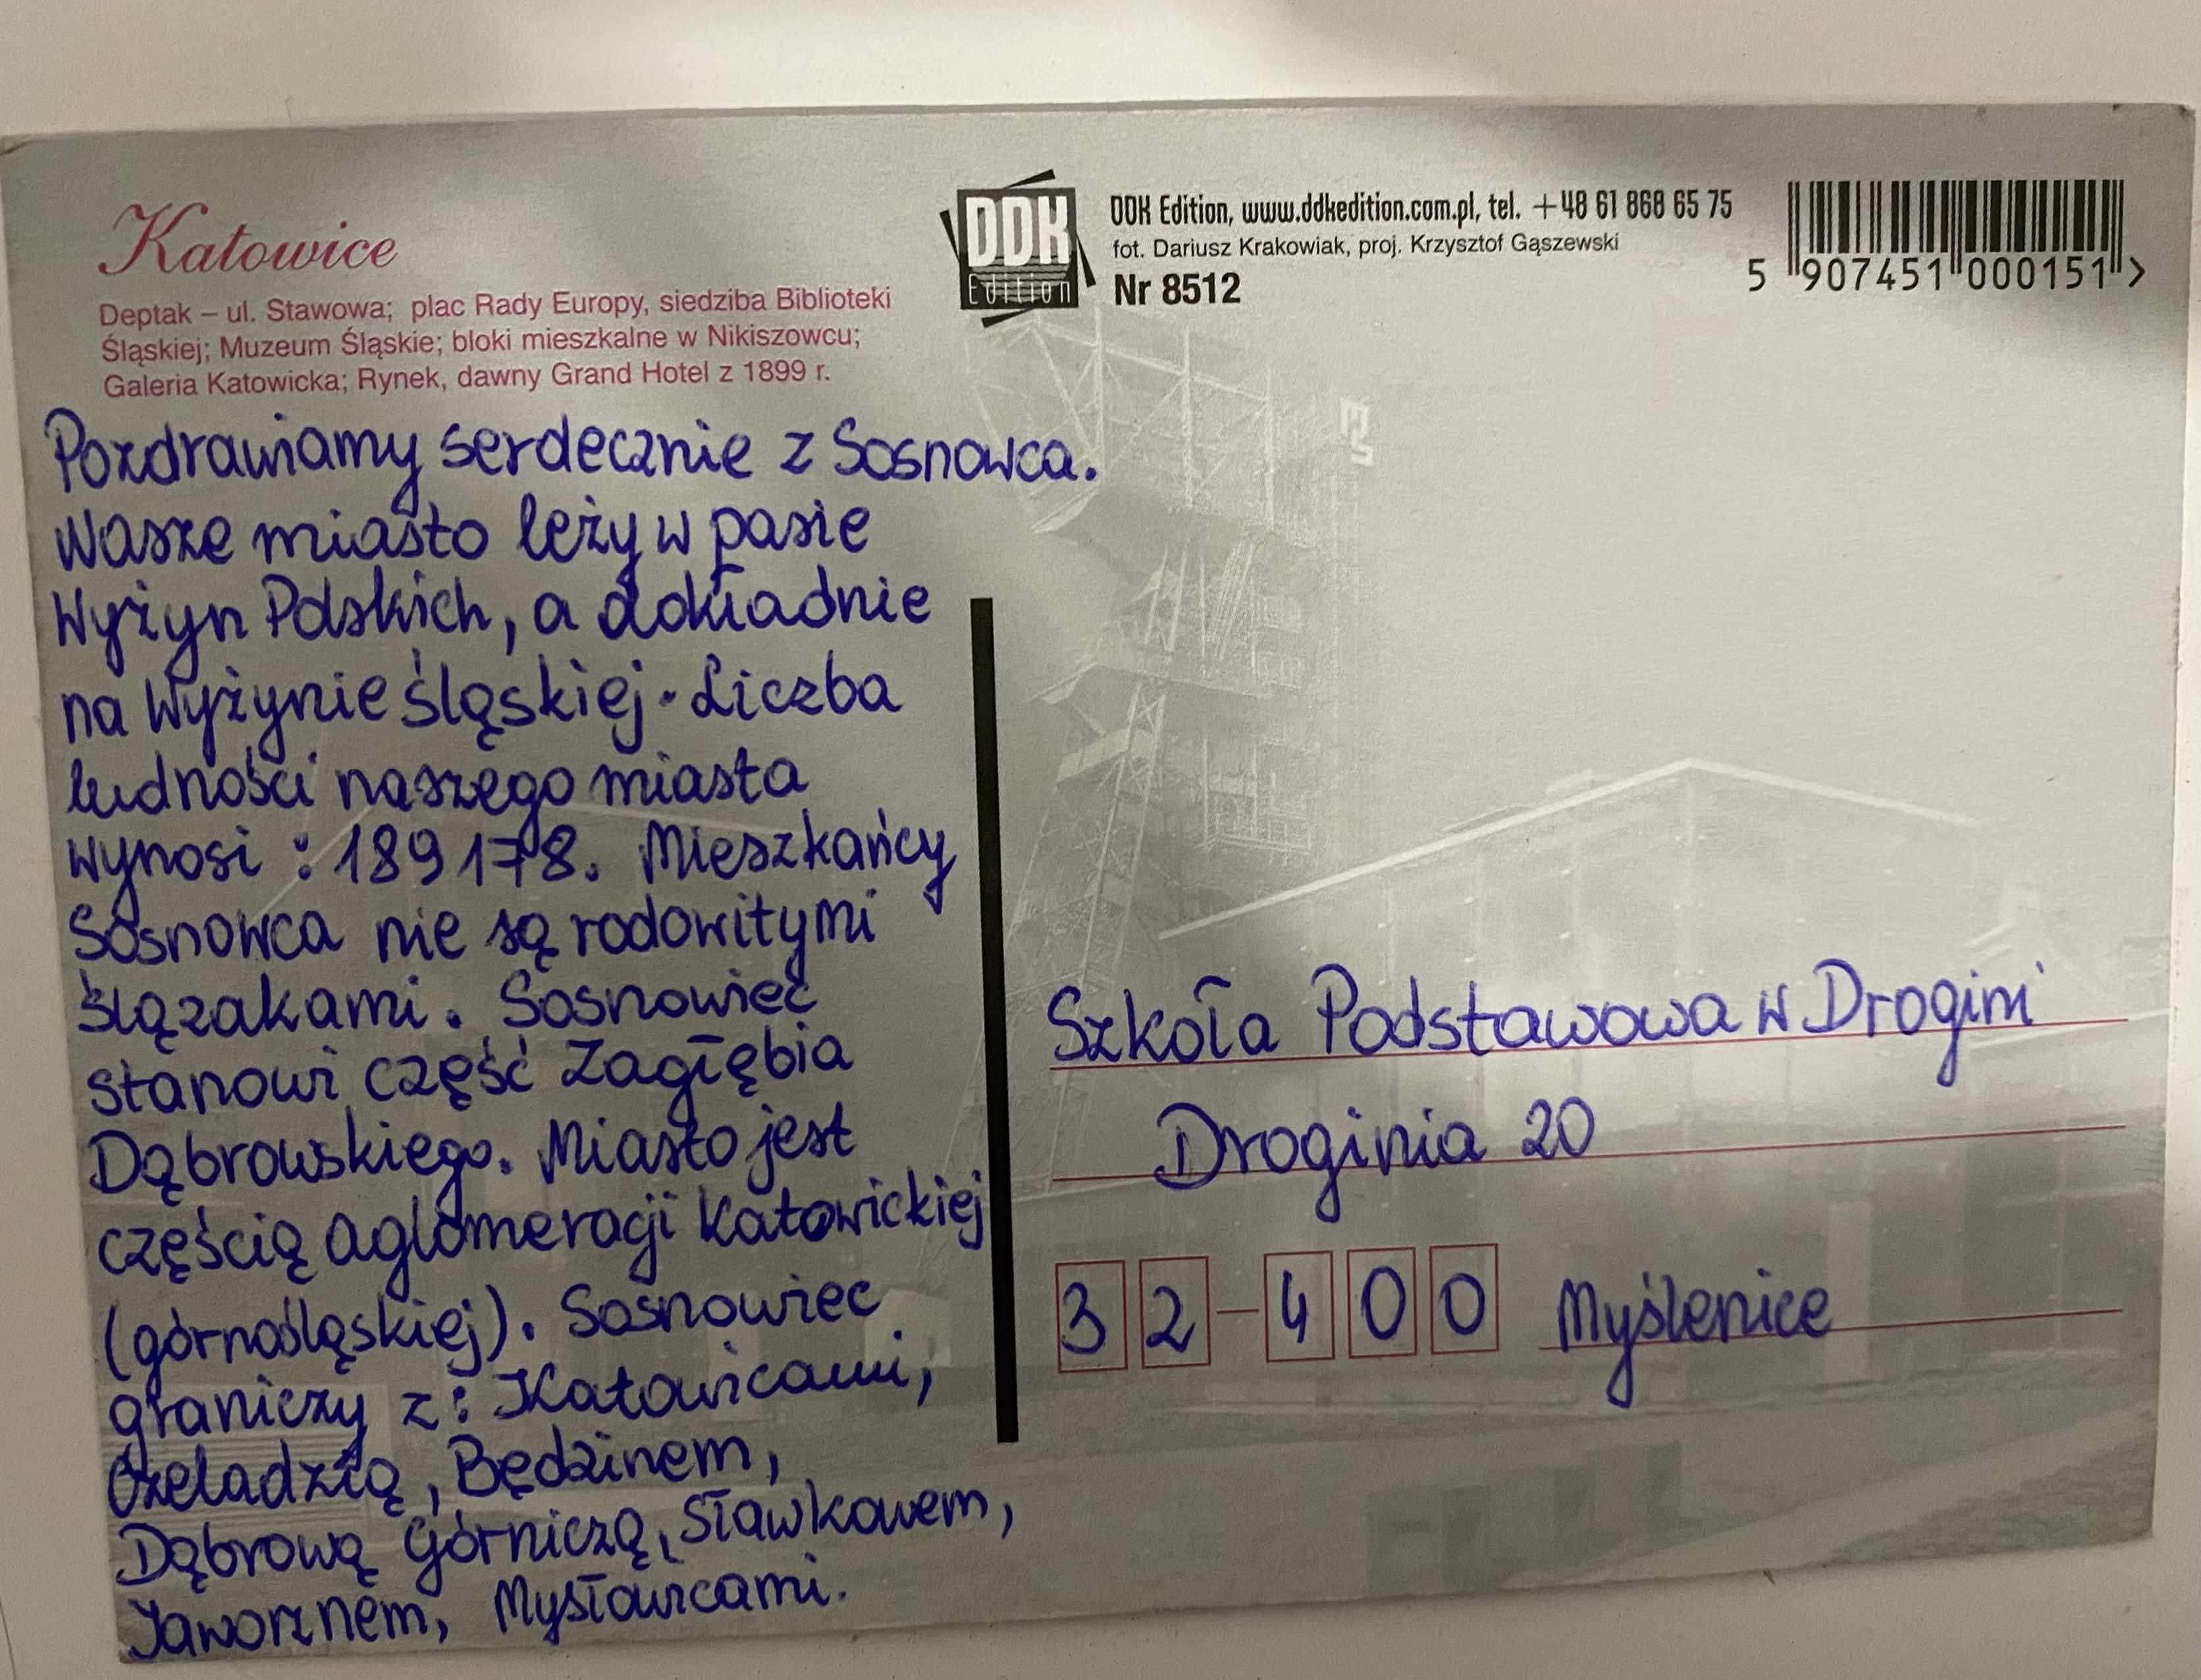 Katowice
Deptak – ul. Stawowa; plac Rady Europy, siedziba Biblioteki
Śląskiej; Muzeum Śląskie; bloki mieszkalne w Nikiszowcu;
Galeria Katowicka; Rynek, dawny Grand Hotel z 1899 r.
DDK
Edition
DDK Edition, www.ddkedition.com.pl, tel. +48 61 868 65 75
fot. Dariusz Krakowiak, proj. Krzysztof Gąszewski
Nr 8512
5 907451 000151 >
Pozdrawiamy serdecznie z Sosnowca.
Wasze miasto leży w pasie
Wyżyn Polskich, a dokładnie
na Wyżynie Śląskiej. Liczba
ludności naszego miasta
wynosi : 189178. Mieszkańcy
Sosnowca nie są rodowitymi
ślązakami. Sosnowiec
stanowi część Zagłębia
Dąbrowskiego. Miasto jest
częścią aglomeracji katowickiej
(górnośląskiej). Sosnowiec
graniczy z: Katowicami,
Czeladzią, Będzinem,
Dąbrową Górniczą, Sławkowem,
Jaworznem, Mysłowicami.
Szkoła Podstawowa w Drogini
Droginia 20
32-400 Myślenice